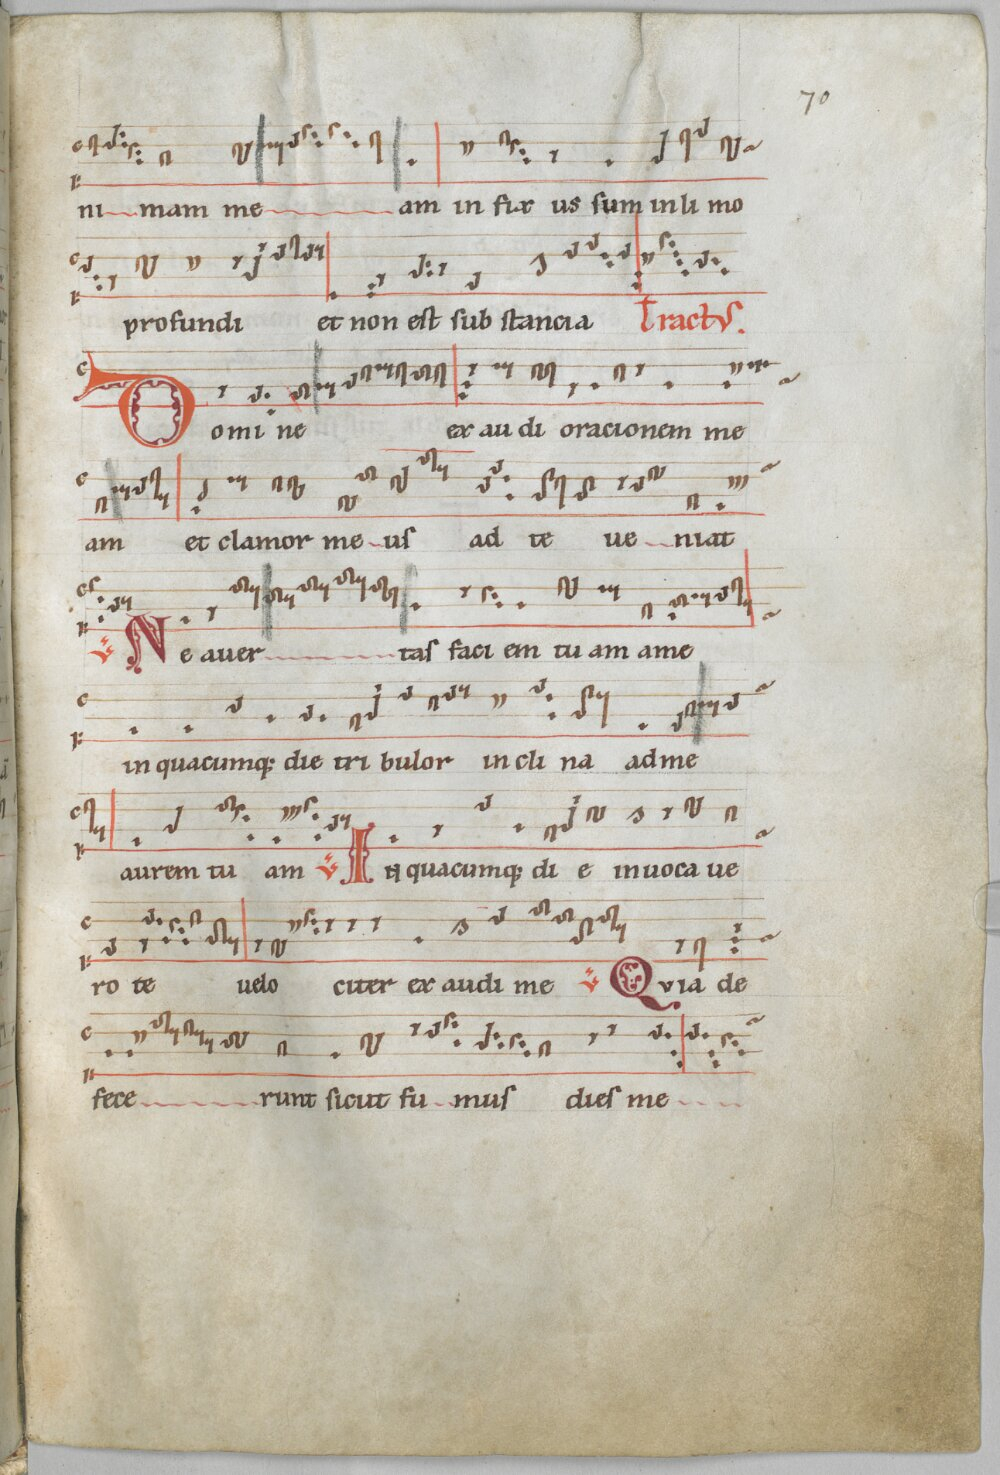 70
ni mam me am in fix us sum in li mo
profundi et non est sub stancia Tractus.
Domine ex au di oracionem me
am et clamor me us ad te ue niat
℣ Ne auer tas faci em tu am ame
in quacumq; die tri bulor in cli na ad me
aurem tu am ℣ In quacumq; di e inuoca ue
ro te uelo citer ex audi me ℣ Quia de
fece runt sicut fu mus dies me